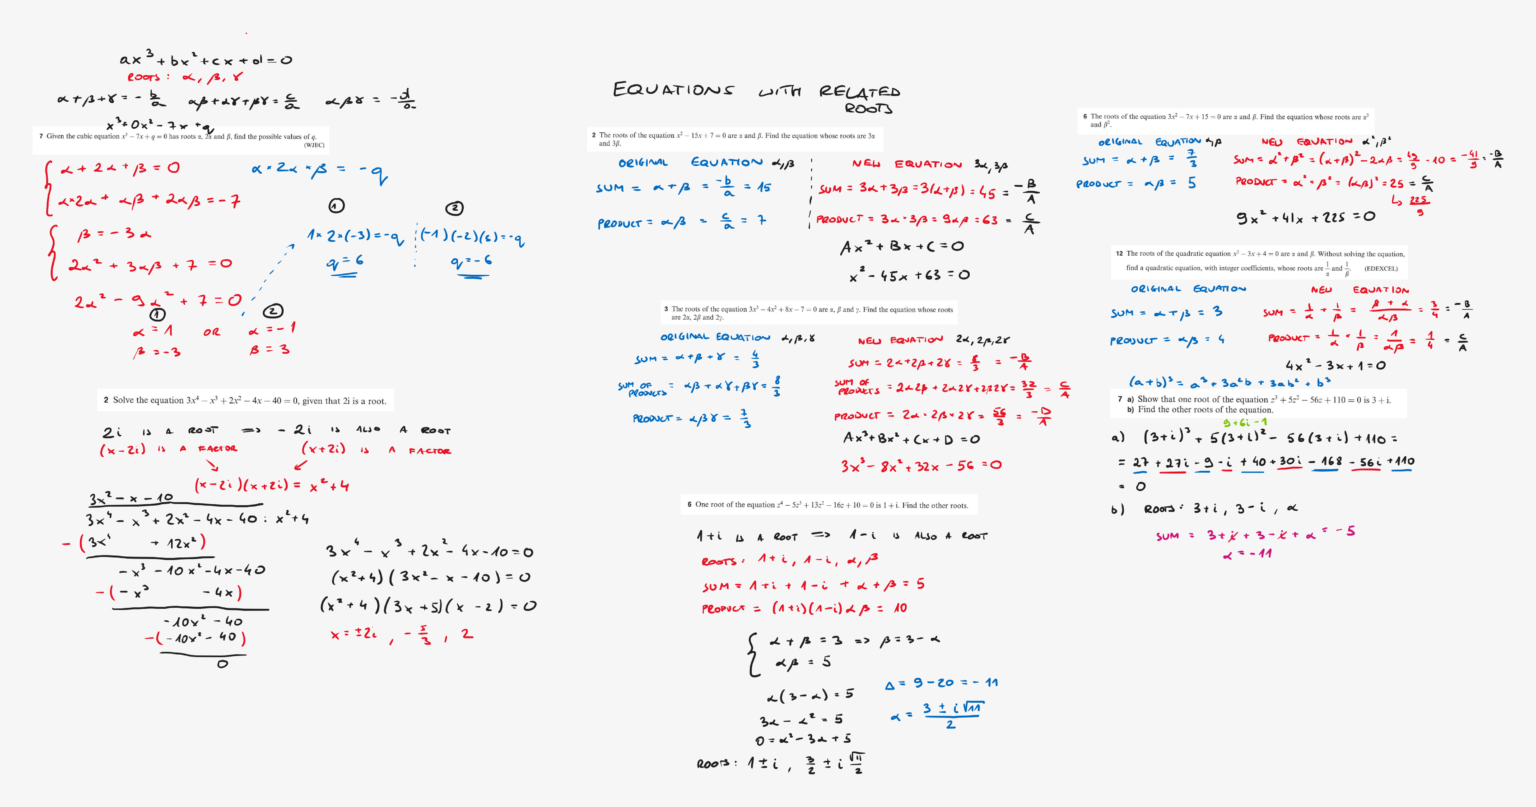 ax³ + bx² + cx + d = 0
ROOTS: α, β, γ
α+β+γ = -b/a   αβ+αγ+βγ = c/a   αβγ = -d/a
x³+0x²-7x+q
7 Given the cubic equation x³ − 7x + q = 0 has roots α, 2α and β, find the possible values of q.
(WJEC)
α + 2α + β = 0   α·2α·β = -q
α·2α + αβ + 2αβ = -7
① ②
β = -3α   1×2×(-3) = -q   (-1)(-2)(3) = -q
2α² + 3αβ + 7 = 0   q = 6   q = -6
2α² - 9α² + 7 = 0
① ②
α = 1 OR α = -1
β = -3   β = 3
2 Solve the equation 3x⁴ − x³ + 2x² − 4x − 40 = 0, given that 2i is a root.
2i IS A ROOT => -2i IS ALSO A ROOT
(x-2i) IS A FACTOR   (x+2i) IS A FACTOR
(x-2i)(x+2i) = x²+4
3x² - x - 10
3x⁴ - x³ + 2x² - 4x - 40 : x²+4
-(3x⁴ + 12x²)
-x³ - 10x² - 4x - 40
-(-x³ - 4x)
-10x² - 40
-(-10x² - 40)
0
3x⁴ - x³ + 2x² - 4x - 10 = 0
(x²+4)(3x² - x - 10) = 0
(x²+4)(3x+5)(x-2) = 0
x = ±2i, -5/3, 2
EQUATIONS WITH RELATED
ROOTS
2 The roots of the equation x² − 15x + 7 = 0 are α and β. Find the equation whose roots are 3α
and 3β.
ORIGINAL EQUATION α,β   NEW EQUATION 3α, 3β
SUM = α+β = -b/a = 15   SUM = 3α+3β = 3(α+β) = 45 = -B/A
PRODUCT = αβ = c/a = 7   PRODUCT = 3α·3β = 9αβ = 63 = C/A
Ax² + Bx + C = 0
x² - 45x + 63 = 0
3 The roots of the equation 3x³ − 4x² + 8x − 7 = 0 are α, β and γ. Find the equation whose roots
are 2α, 2β and 2γ.
ORIGINAL EQUATION α,β,γ   NEW EQUATION 2α, 2β, 2γ
SUM = α+β+γ = 4/3   SUM = 2α+2β+2γ = 8/3 = -B/A
SUM OF PRODUCTS = αβ+αγ+βγ = 8/3   SUM OF PRODUCTS = 2α2β + 2α2γ + 2β2γ = 32/3 = C/A
PRODUCT = αβγ = 7/3   PRODUCT = 2α·2β·2γ = 56/3 = -D/A
Ax³+Bx²+Cx+D = 0
3x³ - 8x² + 32x - 56 = 0
6 One root of the equation z⁴ − 5z³ + 13z² − 16z + 10 = 0 is 1 + i. Find the other roots.
1+i IS A ROOT => 1-i IS ALSO A ROOT
ROOTS: 1+i, 1-i, α, β
SUM = 1+i + 1-i + α + β = 5
PRODUCT = (1+i)(1-i)αβ = 10
α + β = 3 => β = 3-α
αβ = 5
α(3-α) = 5   Δ = 9-20 = -11
3α - α² = 5   α = (3 ± i√11)/2
0 = α² - 3α + 5
ROOTS: 1±i, 3/2 ± i √11/2
6 The roots of the equation 3x² − 7x + 15 = 0 are α and β. Find the equation whose roots are α²
and β².
ORIGINAL EQUATION α,β   NEW EQUATION α², β²
SUM = α+β = 7/3   SUM = α²+β² = (α+β)² - 2αβ = 49/9 - 10 = -41/9 = -B/A
PRODUCT = αβ = 5   PRODUCT = α²·β² = (αβ)² = 25 = C/A
↳ 225/9
9x² + 41x + 225 = 0
12 The roots of the quadratic equation x² − 3x + 4 = 0 are α and β. Without solving the equation,
find a quadratic equation, with integer coefficients, whose roots are 1/α and 1/β. (EDEXCEL)
ORIGINAL EQUATION   NEW EQUATION
SUM = α+β = 3   SUM = 1/α + 1/β = (β+α)/αβ = 3/4 = -B/A
PRODUCT = αβ = 4   PRODUCT = 1/α · 1/β = 1/αβ = 1/4 = C/A
4x² - 3x + 1 = 0
(a+b)³ = a³ + 3a²b + 3ab² + b³
7 a) Show that one root of the equation z³ + 5z² − 56z + 110 = 0 is 3 + i.
b) Find the other roots of the equation.
9+6i-1
a) (3+i)³ + 5(3+i)² - 56(3+i) + 110 =
= 27 + 27i - 9 - i + 40 + 30i - 168 - 56i + 110
= 0
b) ROOTS: 3+i, 3-i, α
SUM = 3+i + 3-i + α = -5
α = -11